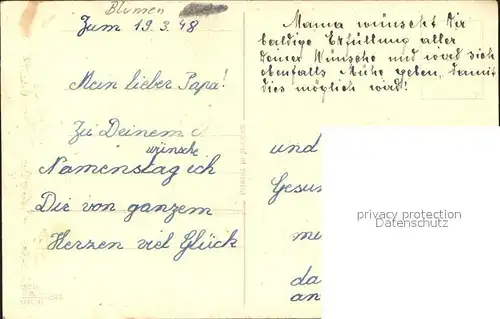 Blumen
Zum 19.3.48
Mein lieber Papa!
Zu Deinem
wünsche
Namenstag ich
Dir von ganzem
Herzen viel Glück
Mama wünscht Dir
baldige Erfüllung aller
Deiner Wünsche und wird sich
ebenfalls Mühe geben, damit
dies möglich wird!
und
Gesun
me
da
an
privacy protection
Datenschutz